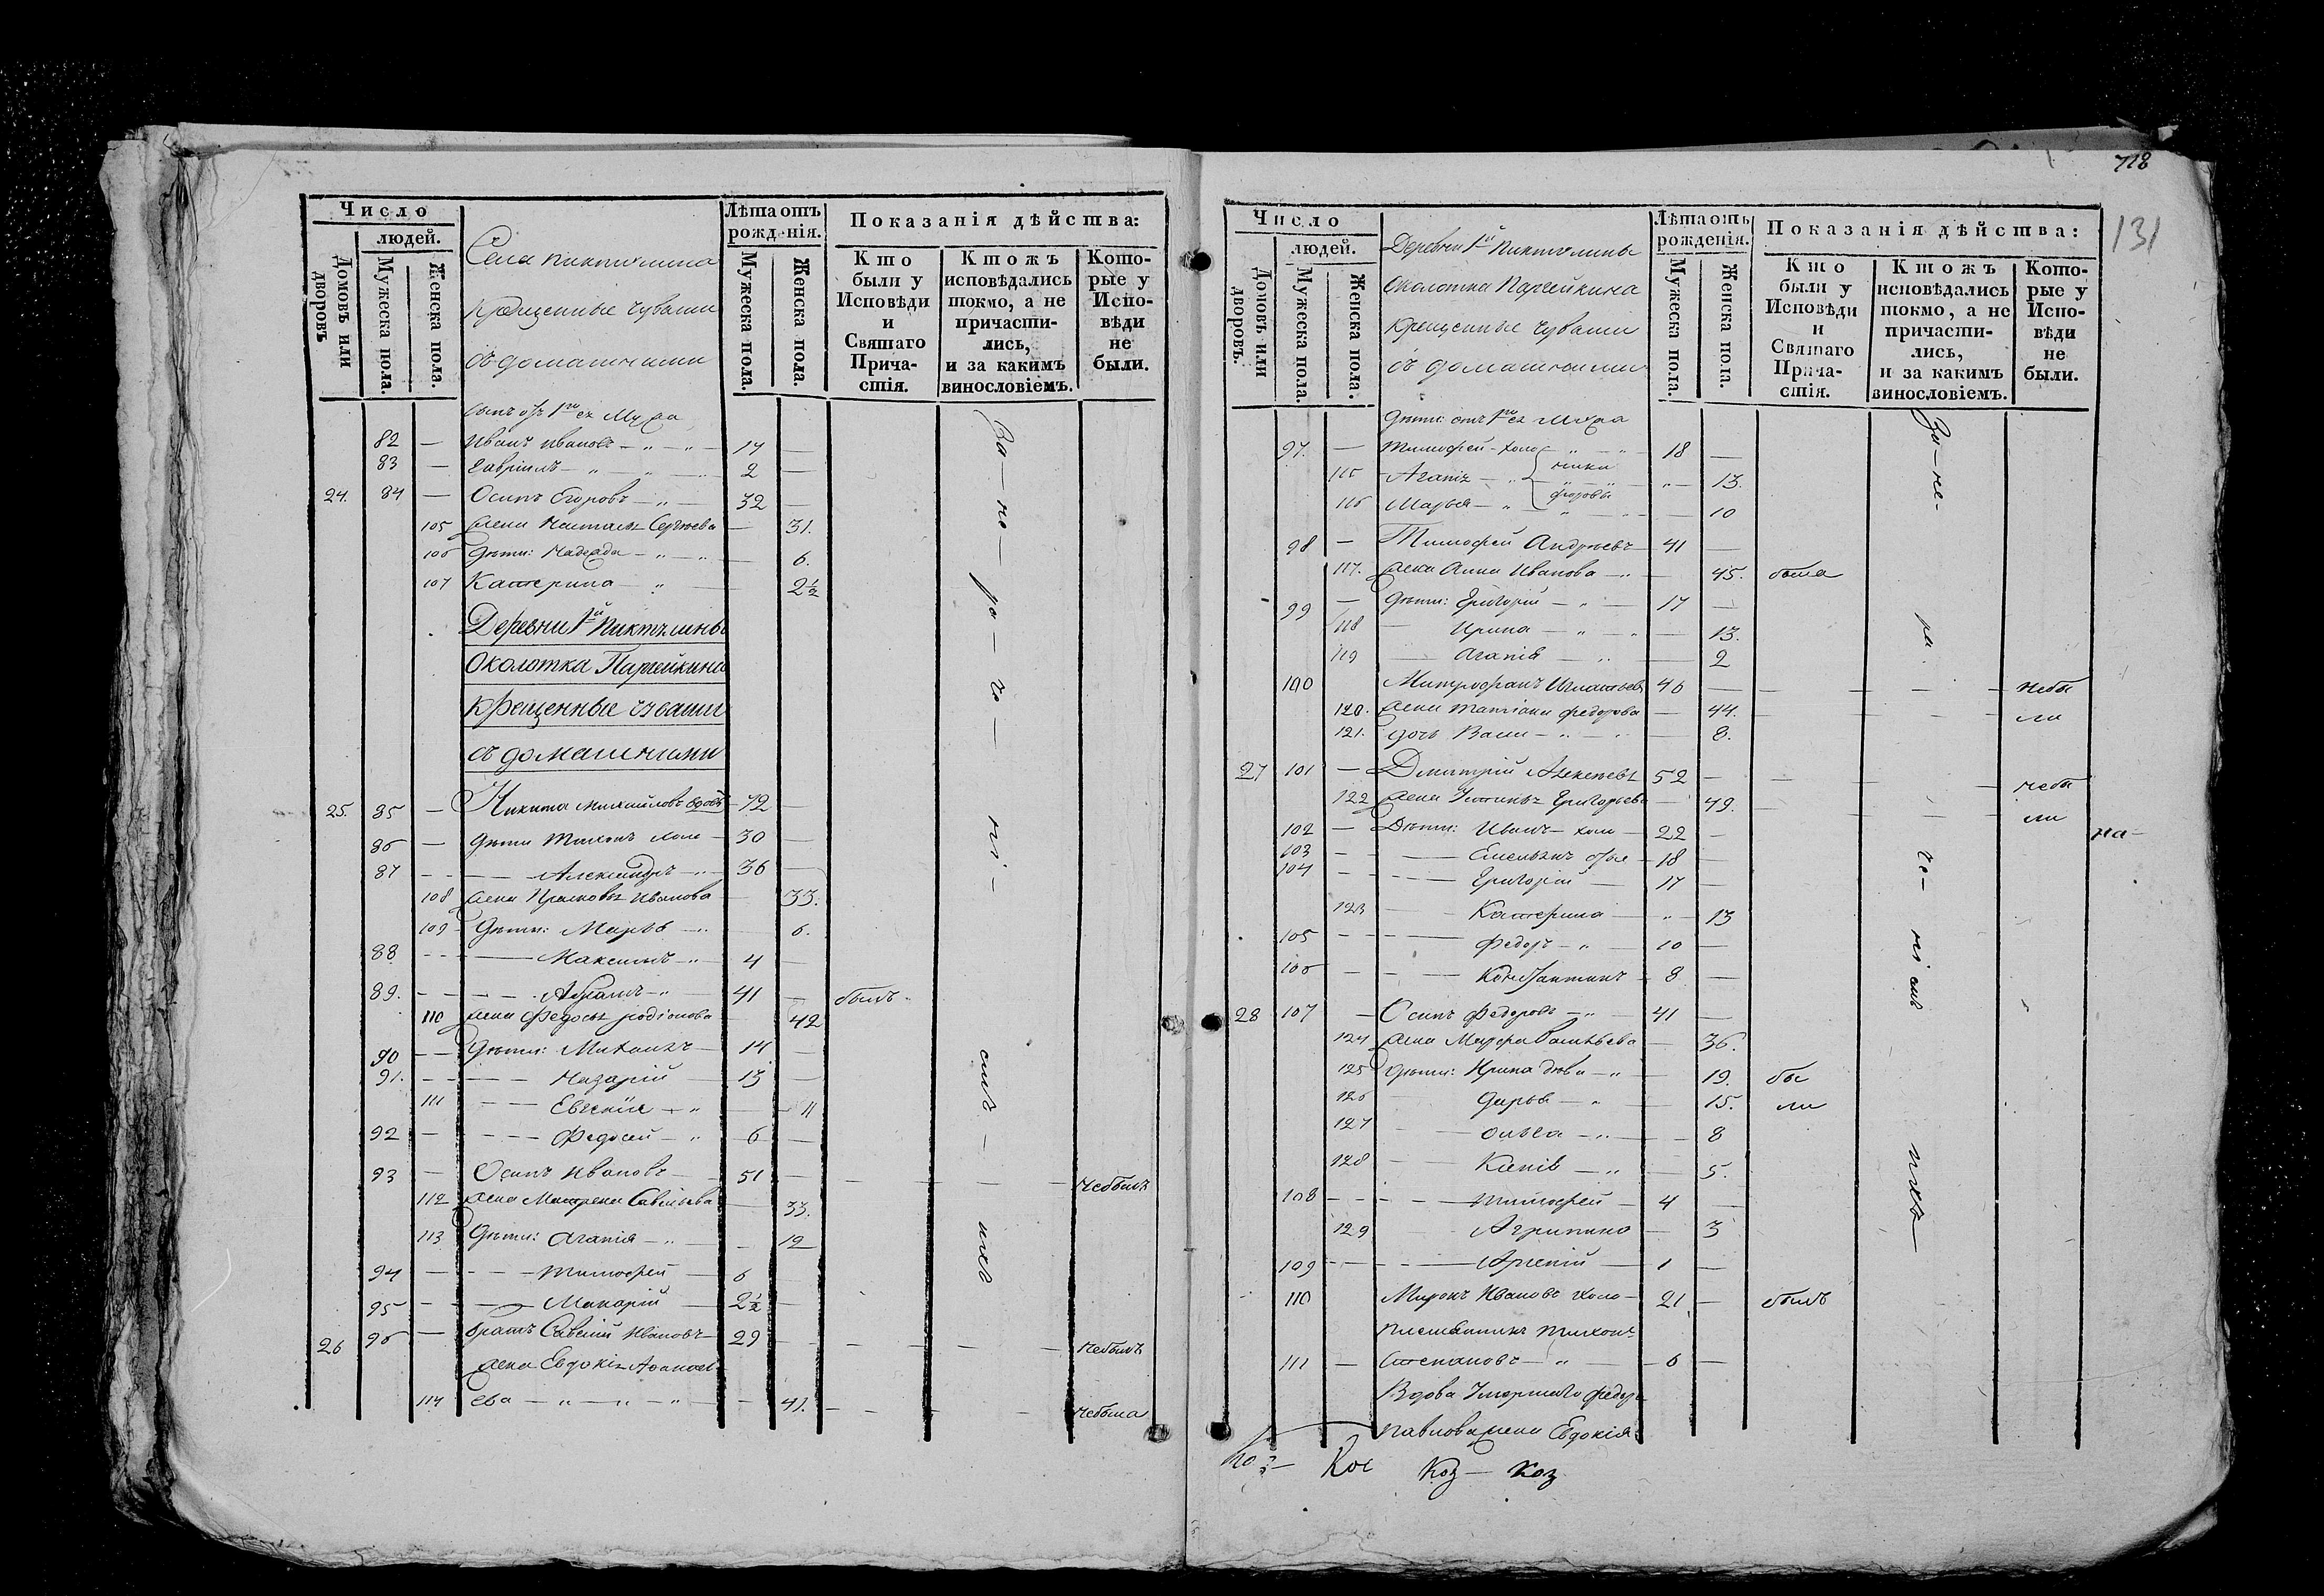 Число
людей.
Домовъ или дворовъ
Мужеска пола.
Женска пола.
Села
крещенные чуваши
съ домашними
Лѣта отъ рожденія.
Мужеска пола.
Женска пола.
Показанія дѣйства:
Кто были у Исповѣди и Святаго Прича-стія.
Ктожъ исповѣдались токмо, а не причасти-лись, и за какимъ винословіемъ.
Кото-рые у Испо-вѣди не были.
сынъ отъ 1го ея мужа
82 — Иванъ Ивановъ — 17 —
83 — Гавріилъ — 2 —
24. 84 — Осипъ Егоровъ — 32 —
105 жена Наталья Сергѣева — 31.
106 Дѣти: — 6.
107 Катерина — 2½
Деревни 1й Пиктулины
Околотка
крещенные чуваши
съ домашними
25. 85 — Никита Михайловъ вдовъ — 72 —
86 — Дѣти Тихонъ холо — 30 —
87 — Александръ — 36 —
108 жена Прасковья Иванова — 33.
109 Дѣти: Марья — 6.
88 — Максимъ — 4 —
89. — Абрамъ — 41 — былъ
110 жена Федосья Родіонова 42
90 — Дѣти: Михаилъ — 14 —
91. — Назарій — 13 —
111 — Евгенія — 11
92 — Федосей — 6 —
93 — Осипъ Ивановъ — 51 — небылъ
112 жена Матрена Савельева 33.
113 Дѣти: Агапія — 12
94 — Тимофей — 6
95 — Макарій — 2½ —
26 96 — братъ Савелій Ивановъ — 29 — небылъ
жена Евдокія
114 ева — 41. — небыла
За — не — ро — че — ні — емъ — ихъ
718
131
Число
людей.
Домовъ или дворовъ.
Мужеска пола.
Женска пола.
Деревни 1й Пиктулины
Околотка
Крещенные чуваши
съ домашними
Лѣта отъ рожденія.
Мужеска пола.
Женска пола.
Показанія дѣйства:
Кто были у Исповѣди и Святаго Прича-стія.
Ктожъ исповѣдались токмо, а не причасти-лись, и за какимъ винословіемъ.
Кото-рые у Испо-вѣди не были.
Дѣти отъ 1го ея мужа
97. — Тимофей — холо 18 —
115 Агапія — 13.
116 Марья — 10
98 — Тимофей Андреевъ — 41 —
117. жена Анна Иванова — 45. была
99 — Дѣти: Григорій — 17 —
118 — Ирина — 13.
119 — Агапія — 2
100 Митрофанъ Игнатьевъ 46 — небы
120. жена Татіана Федорова — 44. ли
121. дочь — 8.
27 101 — Дмитрій Алексѣевъ 52 — небы
122 жена Устинья Григорьева — 49. ли
102 — Дѣти: Иванъ — холо — 22 —
103 — Емельянъ — 18 —
104 — Григорій — 17 —
123 — Катерина — 13
105 — Федоръ — 10 —
106 — Константинъ — 8 —
28 107 — Осипъ Федоровъ — 41 —
124 жена Марфа Васильева — 36.
125 Дѣти: Ирина дѣва — 19. бы
126 Дарья — 15. ли
127 — Ольга — 8
128 — — 5.
108 — Тимофей — 4 —
129 — Агрипина — 3
109 — — 1 —
110 Миронъ Ивановъ холо — 21 — былъ
племянникъ
111 — Степановъ — 6 —
Вдова Умершаго Федора
Павлова жена Евдокія
За — не — ра — че — ні емъ ихъ
на —
Коз — Коз